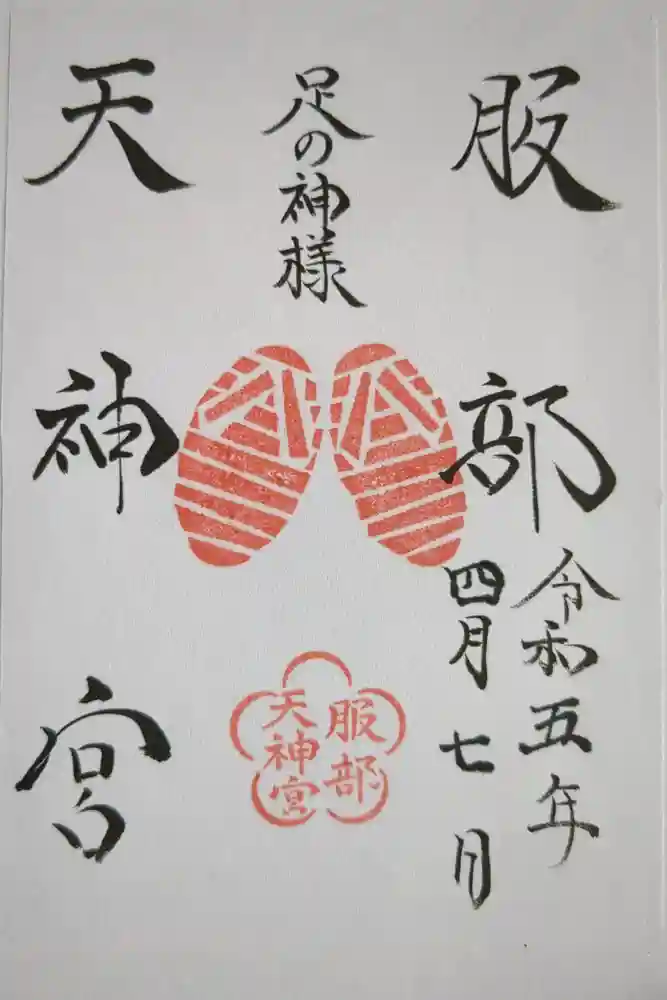 服部
令和五年
四月七日
足の神様
天神宮
服部
天神宮